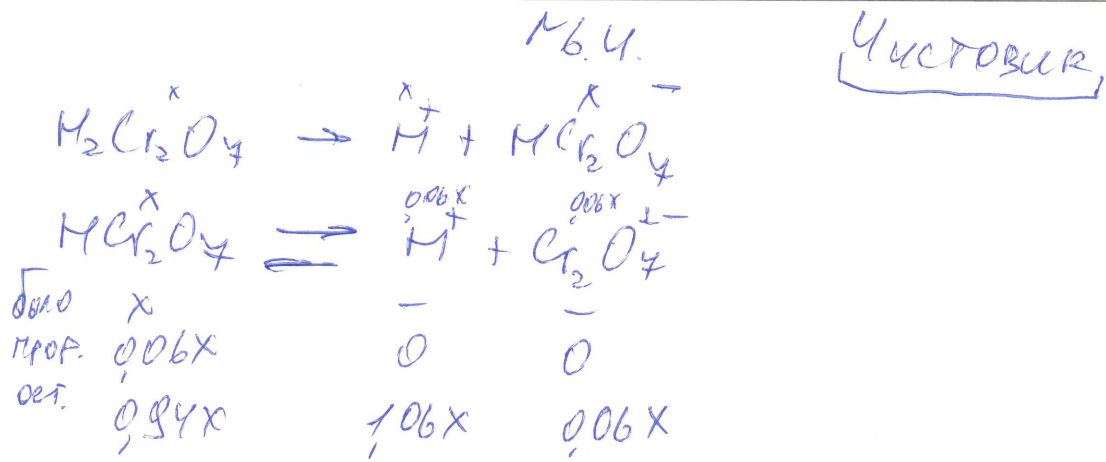 № 6.4.
Чистовик
x x x
H₂Cr₂O₇ → H⁺ + HCr₂O₇⁻
x 0,06x 0,06x
HCr₂O₇ ⇌ H⁺ + Cr₂O₇²⁻
было x – –
прор. 0,06x 0 0
ост. 0,94x 1,06x 0,06x